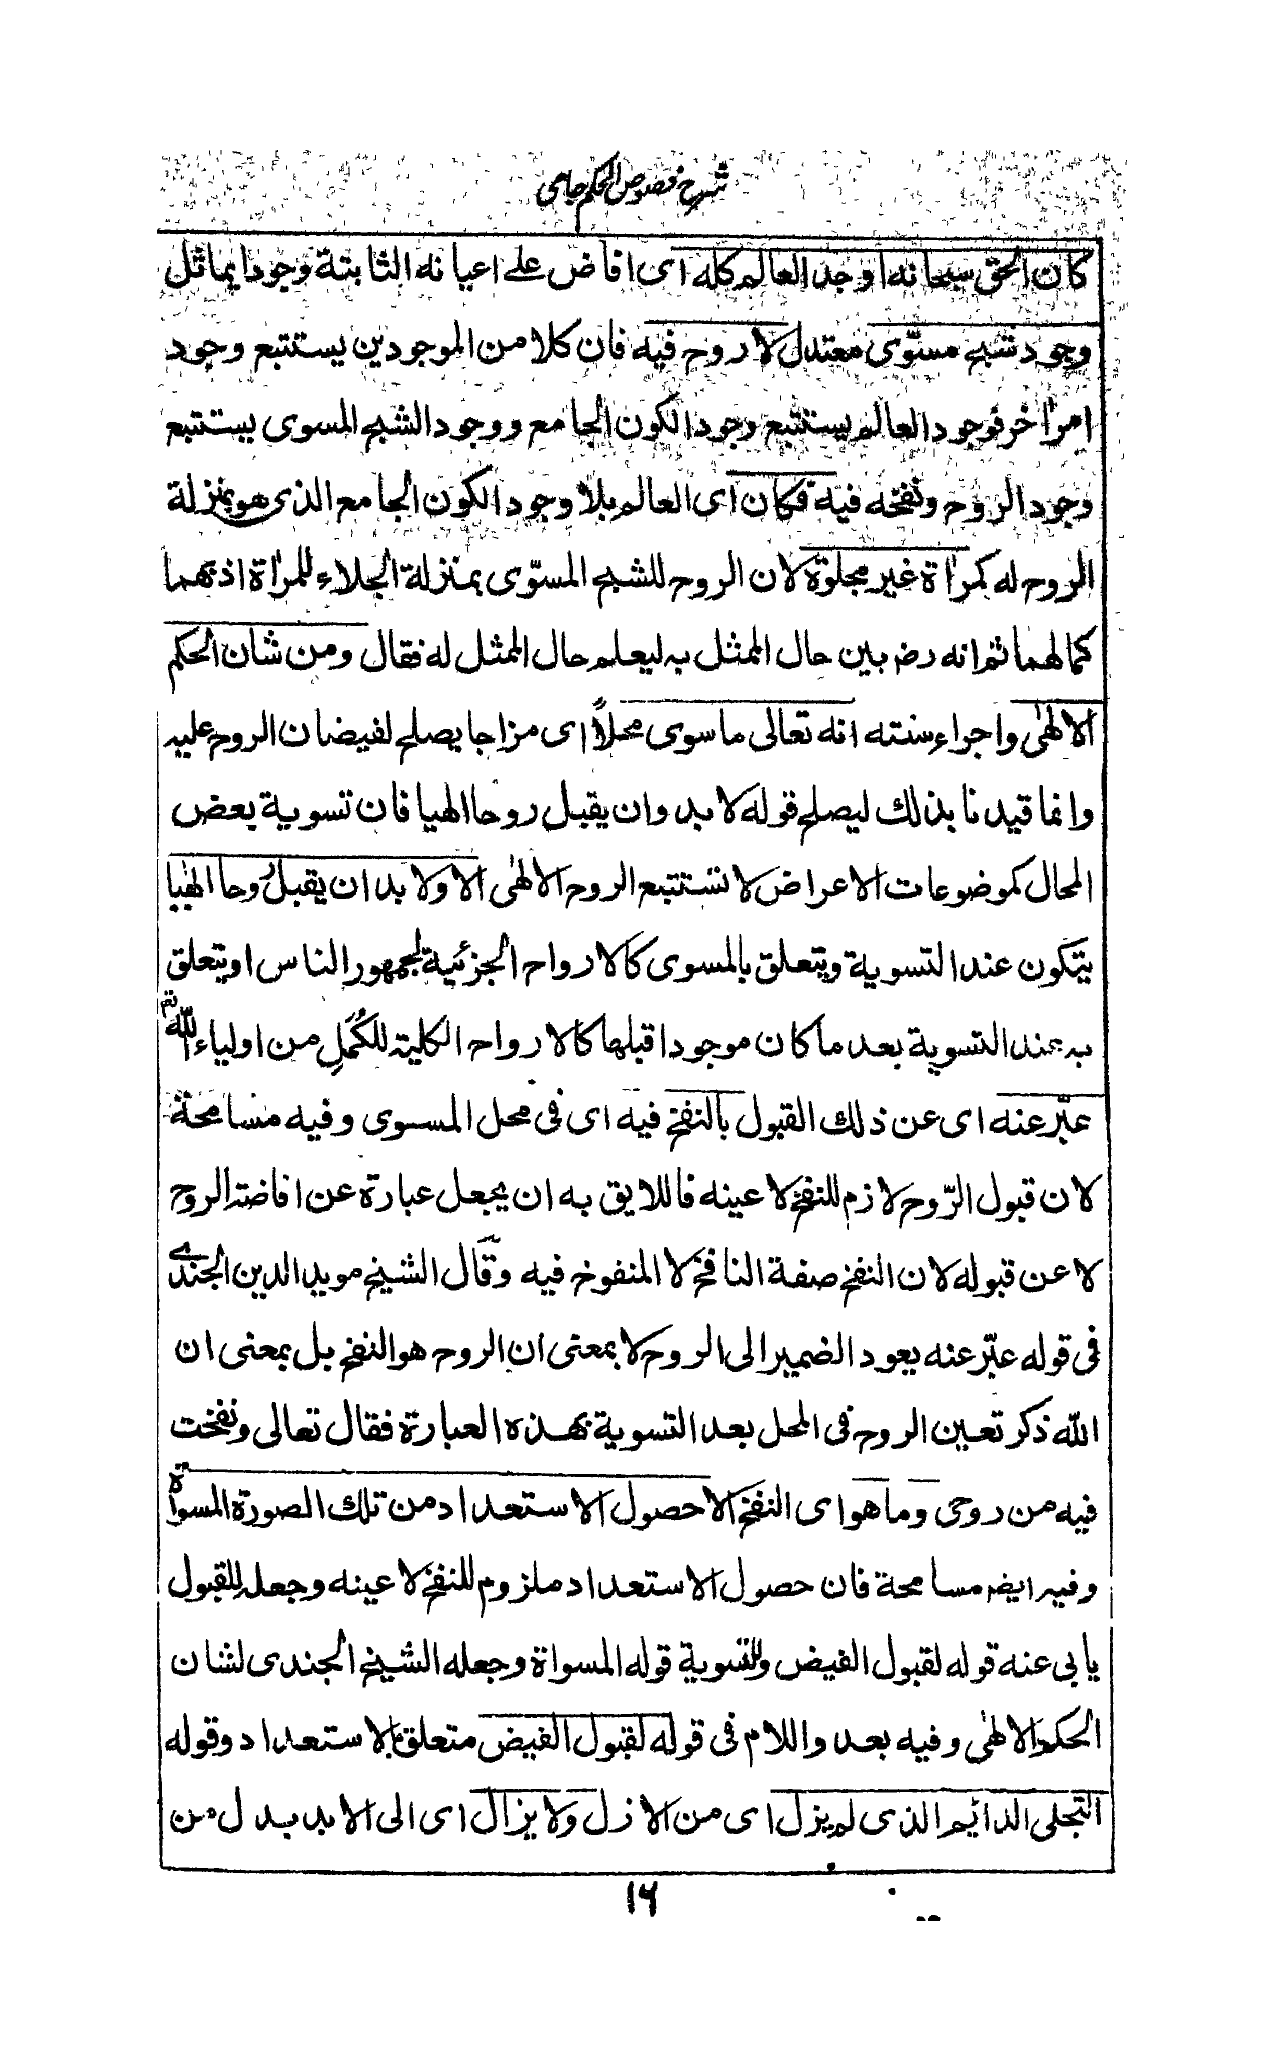 شرح فصوص الحكم جامى
كان الحق سبحانه اوجد العالم كله اى افاض على اعيانه الثابتة وجودا يماثل
وجود شبح مسوّى معتدل لا روح فيه فان كلا من الموجودين يستتبع وجود
امرا خر فوجود العالم يستتبع وجود الكون الجامع ووجود الشبح المسوى يستتبع
وجود الروح ونفخه فيه فكان اى العالم بلا وجود الكون الجامع الذى هو بمنزلة
الروح له كمرأة غير مجلوّة لان الروح للشبح المسوّى بمنزلة الجلاء للمرأة اذ بهما
كمالهما ثم انه رضه بين حال الممثل به ليعلم حال الممثل له فقال ومن شان الحكم
الالهٰى واجراء سنته انه تعالى ما سوى محلاً اى مزاجا يصلح لفيضان الروح عليه
وانما قيدنا بذلك ليصلح قوله لا بد وان يقبل روحا الهيا فان تسوية بعض
المحال كموضوعات الاعراض لا تستتبع الروح الالهٰى الا ولا بد ان يقبل رُوحا الهٰيا
يتكون عند التسوية ويتعلق بالمسوى كالارواح الجزئية لجمهور الناس او يتعلق
به عند التسوية بعد ما كان موجودا قبلها كالارواح الكلية للكُمَلِ من اولياء الله تم
عبّر عنه اى عن ذلك القبول بالنفخ فيه اى فى محل المسوى وفيه مسامحة
لان قبول الرّوح لازم للنفخ لا عينه فاللايق به ان يجعل عبارة عن افاضته الروح
لا عن قبوله لان النفخ صفة النافخ لا المنفوخ فيه وقال الشيخ مويد الدين الجندے
فى قوله عبّر عنه يعود الضمير الى الروح لا بمعنى ان الروح هو النفخ بل بمعنى ان
الله ذكر تعين الروح فى المحل بعد التسوية بهذه العبارة فقال تعالى ونفخت
فيه من روحى وما هو اى النفخ الا حصول الاستعداد من تلك الصورة المسواة
وفيه ايضه مسامحة فان حصول الاستعداد ملزوم للنفخ لا عينه وجعله للقبول
يابى عنه قوله لقبول الفيض وللتسوية قوله المسواة وجعله الشيخ الجندى لشان
الحكم الالهٰى وفيه بعد واللام فى قوله لقبول الفيض متعلق بالاستعداد وقوله
التجلى الدائم الذى لم يزل اى من الازل ولا يزال اى الى الابد بدل من
١٦